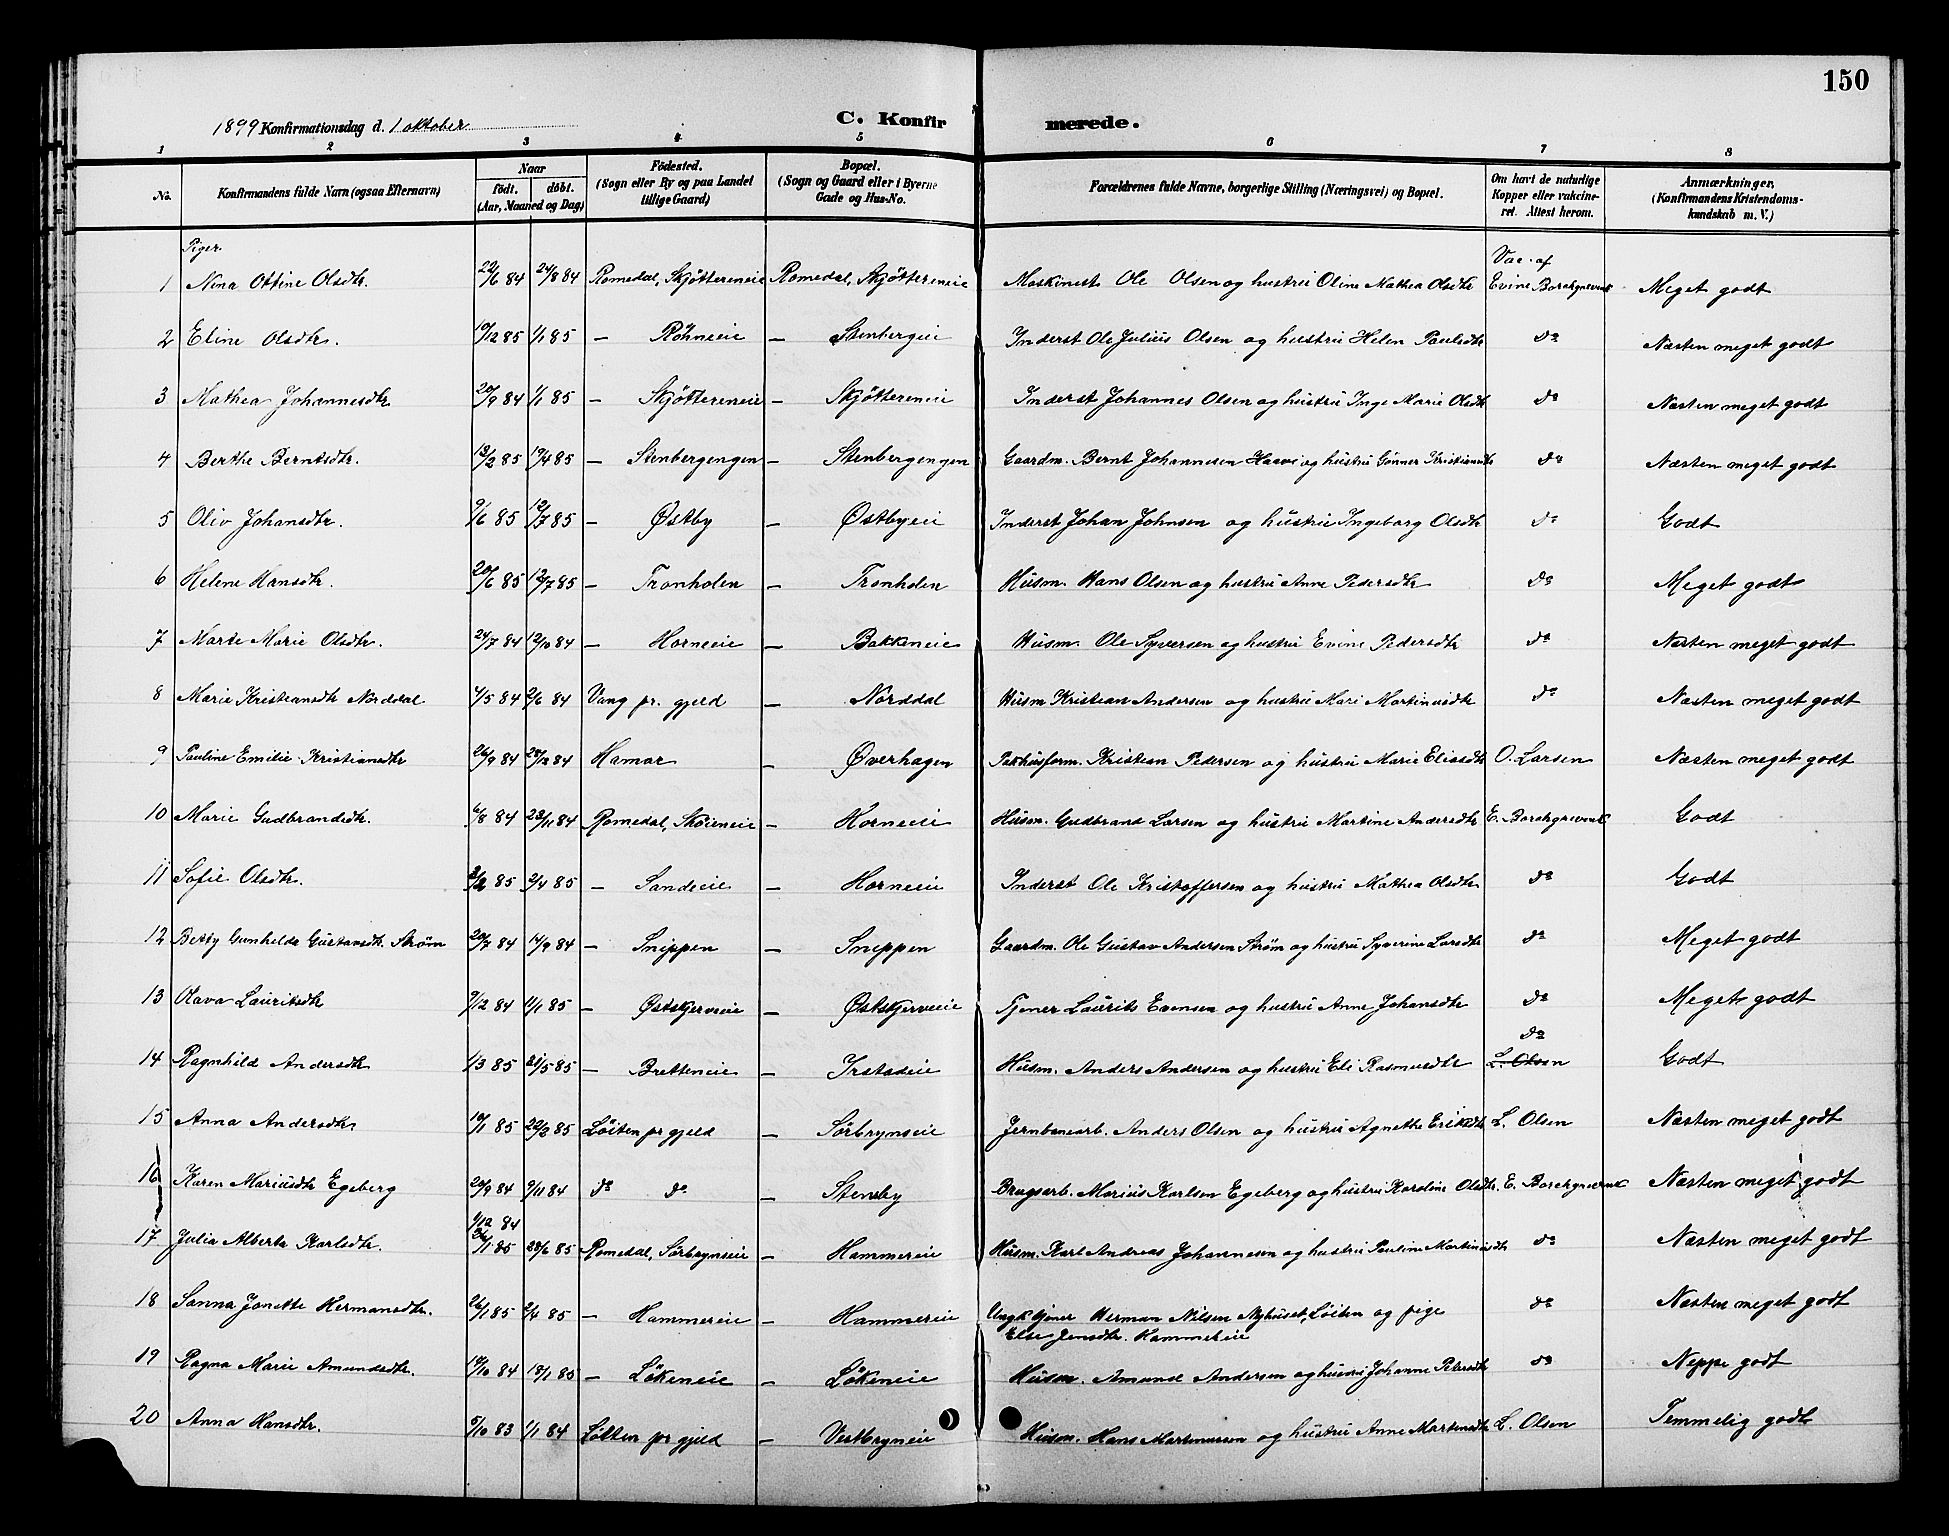 150
1899 Konfirmationsdag d. 1 oktober
C. Konfirmerede.
1 2 3 4 5 6 7 8
No. | Konfirmandens fulde Navn (ogsaa Efternavn) | Naar født. døbt. (Aar, Maaned og Dag) | Fødested. (Sogn eller By og paa Landet tillige Gaard) | Bopæl. (Sogn og Gaard eller i Byerne Gade og Hus-No. | Forældrenes fulde Navne, borgerlige Stilling (Næringsvei) og Bopæl. | Om havt de naturlige Kopper eller vakcineret. Attest herom. | Anmærkninger, (Konfirmandens Kristendomskundskab m. V.)
Piger.
1 Nina Ottine Olsdtr. 22/6 84 24/8 84 Romedal, Skjøttereneie Romedal, Skjøttereneie Maskinest Ole Olsen og hustru Oline Mathea Olsdtr Vac. af Evine Borchgrevink Meget godt
2 Eline Olsdtr. 85 1/1 85 — Røhneeie — Stenbergeie Inderst Ole Julius Olsen og hustru Helen Paulsdtr do Næsten meget godt
3 Mathea Johannesdtr 20/9 84 1/1 85 — Skjøttereneie — Skjøttereneie Inderst Johannes Olsen og hustru Inge Marie Olsdtr do Næsten meget godt
4 Berthe Berntsdtr. 13/2 85 19/4 85 — Stenbergengen — Stenbergengen Gaardm. Bernt Johannesen Haave og hustru Gønner Kristiansdtr do Næsten meget godt
5 Oliv Johansdtr. 9/6 85 12/7 85 — Østby — Østbyeie Inderst Johan Johnsen og hustru Ingeborg Olsdtr do Godt
6 Helene Hansdtr. 20/6 85 12/7 85 — Tronholen — Tronholen Husm. Hans Olsen og hustru Anne Pedersdtr do Meget godt
7 Marte Marie Olsdtr. 24/7 84 12/10 84 — Horneeie — Bakkeneie Husm. Ole Syversen og hustru Evine Pedersdtr do Næsten meget godt
8 Marie Kristiansdtr Norddal 4/5 84 2/6 84 Vang pr. gjeld — Norddal Husm Kristian Andersen og hustru Mari Martinusdtr do Næsten meget godt
9 Pauline Emilie Kristiansdtr 26/9 84 28/12 84 Hamar — Øverhagen Pakhusform. Kristian Pedersen og hustru Marie Eliasdtr O. Larsen Næsten meget godt
10 Marie Gudbrandsdtr. 6/8 84 23/11 84 Romedal, Skøieneie — Horneeie Husm. Gudbrand Larsen og hustru Martine Andersdtr E. Borchgrevink Godt
11 Sofie Olsdtr. 3/2 85 2/4 85 — Sandeeie — Horneeie Inderst Ole Kristoffersen og hustru Mathea Olsdtr do Godt
12 Betsy Gunhilda Gustavsdtr. Strøm 20/7 84 14/9 84 — Snippen — Snippen Gaardm. Ole Gustav Andersen Strøm og hustru Syverine Larsdtr do Meget godt
13 Olava Lauritsdtr 7/12 84 11/1 85 — Østskjerveeie — Østskjerveeie Tjener Laurits Evensen og hustru Anne Johansdtr do Meget godt
do
14 Ragnhild Andersdtr 1/3 85 31/5 85 — Bretteneie — Irstadeie Husm. Anders Andersen og hustru Eli Rasmusdtr L. Olsen Godt
15 Anna Andersdtr 10/1 85 22/2 85 Løiten pr gjeld — Sørbrynseie Jernbanearb. Anders Olsen og hustru Agnethe Eriksdtr L. Olsen Næsten meget godt
16 Karen Mariusdtr Egeberg 20/9 84 9/11 84 do do — Stensby Brugsarb. Marius Karlsen Egeberg og hustru Karoline Olsdtr. E. Borchgrevink Næsten meget godt
84
17 Julia Alberte Karlsdtr. 85 28/6 85 Romedal, Sørbrynseie — Hammereie Husm. Karl Andreas Johannesen og hustru Pauline Martinusdtr do Næsten meget godt
18 Sanna Jonette Hermansdtr. 26/1 85 2/4 85 — Hammereie — Hammereie Ungk tjener Herman Nilsen Nyhuset, Løiten og pige
Else Jensdtr. Hammereie do Næsten meget godt
19 Ragna Marie Amundsdtr. 84 18/1 85 — Løkeneie — Løkeneie Husm. Amund Andersen og hustru Johanne Petersdtr do Neppe godt
20 Anna Hansdtr. 5/10 83 1/1 84 Løiten pr gjeld — Vestbryneie Husm. Hans Martinusen og hustru Anne Martinsdtr L. Olsen Temmelig godt